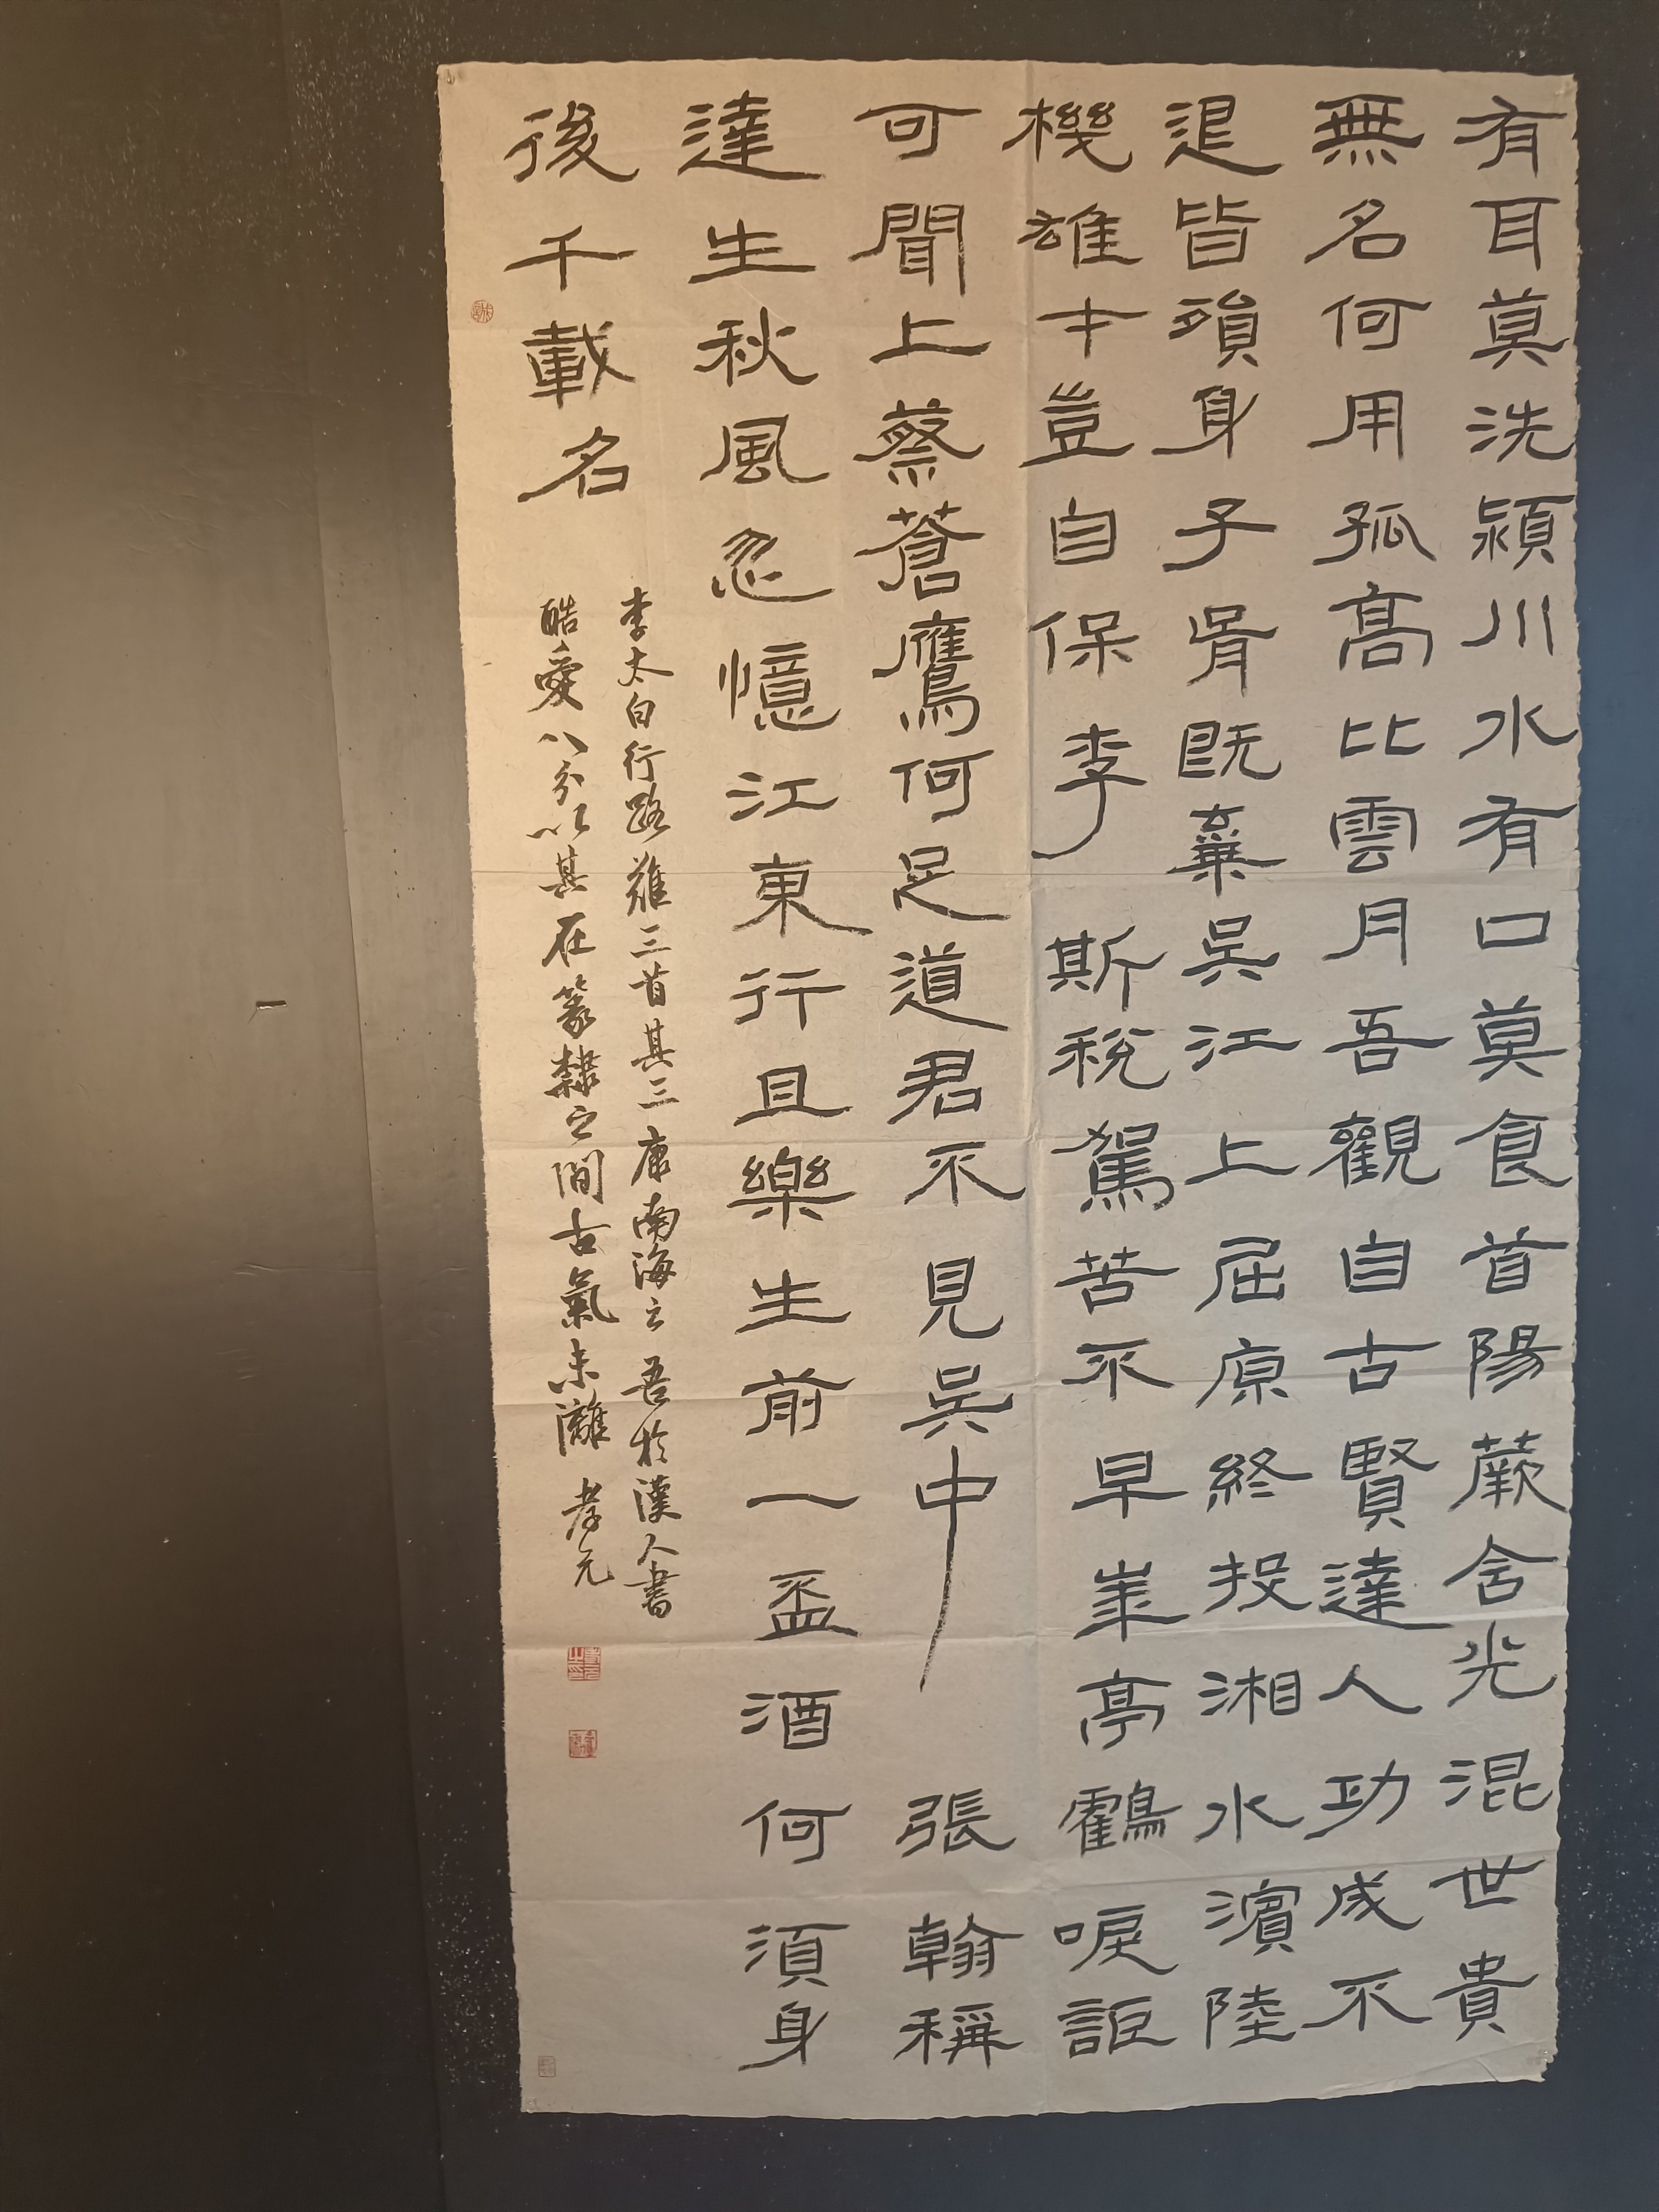 有耳莫洗潁川水有口莫食首陽蕨含光混世貴
無名何用孤高比雲月吾觀自古賢達人功成不
退皆殞身子胥既棄吳江上屈原終投湘水濱陸
機雄才豈自保李斯稅駕苦不早華亭鶴唳詎
可聞上蔡蒼鷹何足道君不見吳中張翰稱
達生秋風忽憶江東行且樂生前一盃酒何須身
後千載名
李太白行路難三首其三康南海云吾於漢人書
酷愛八分以其在篆隸之間古氣未漓孝元